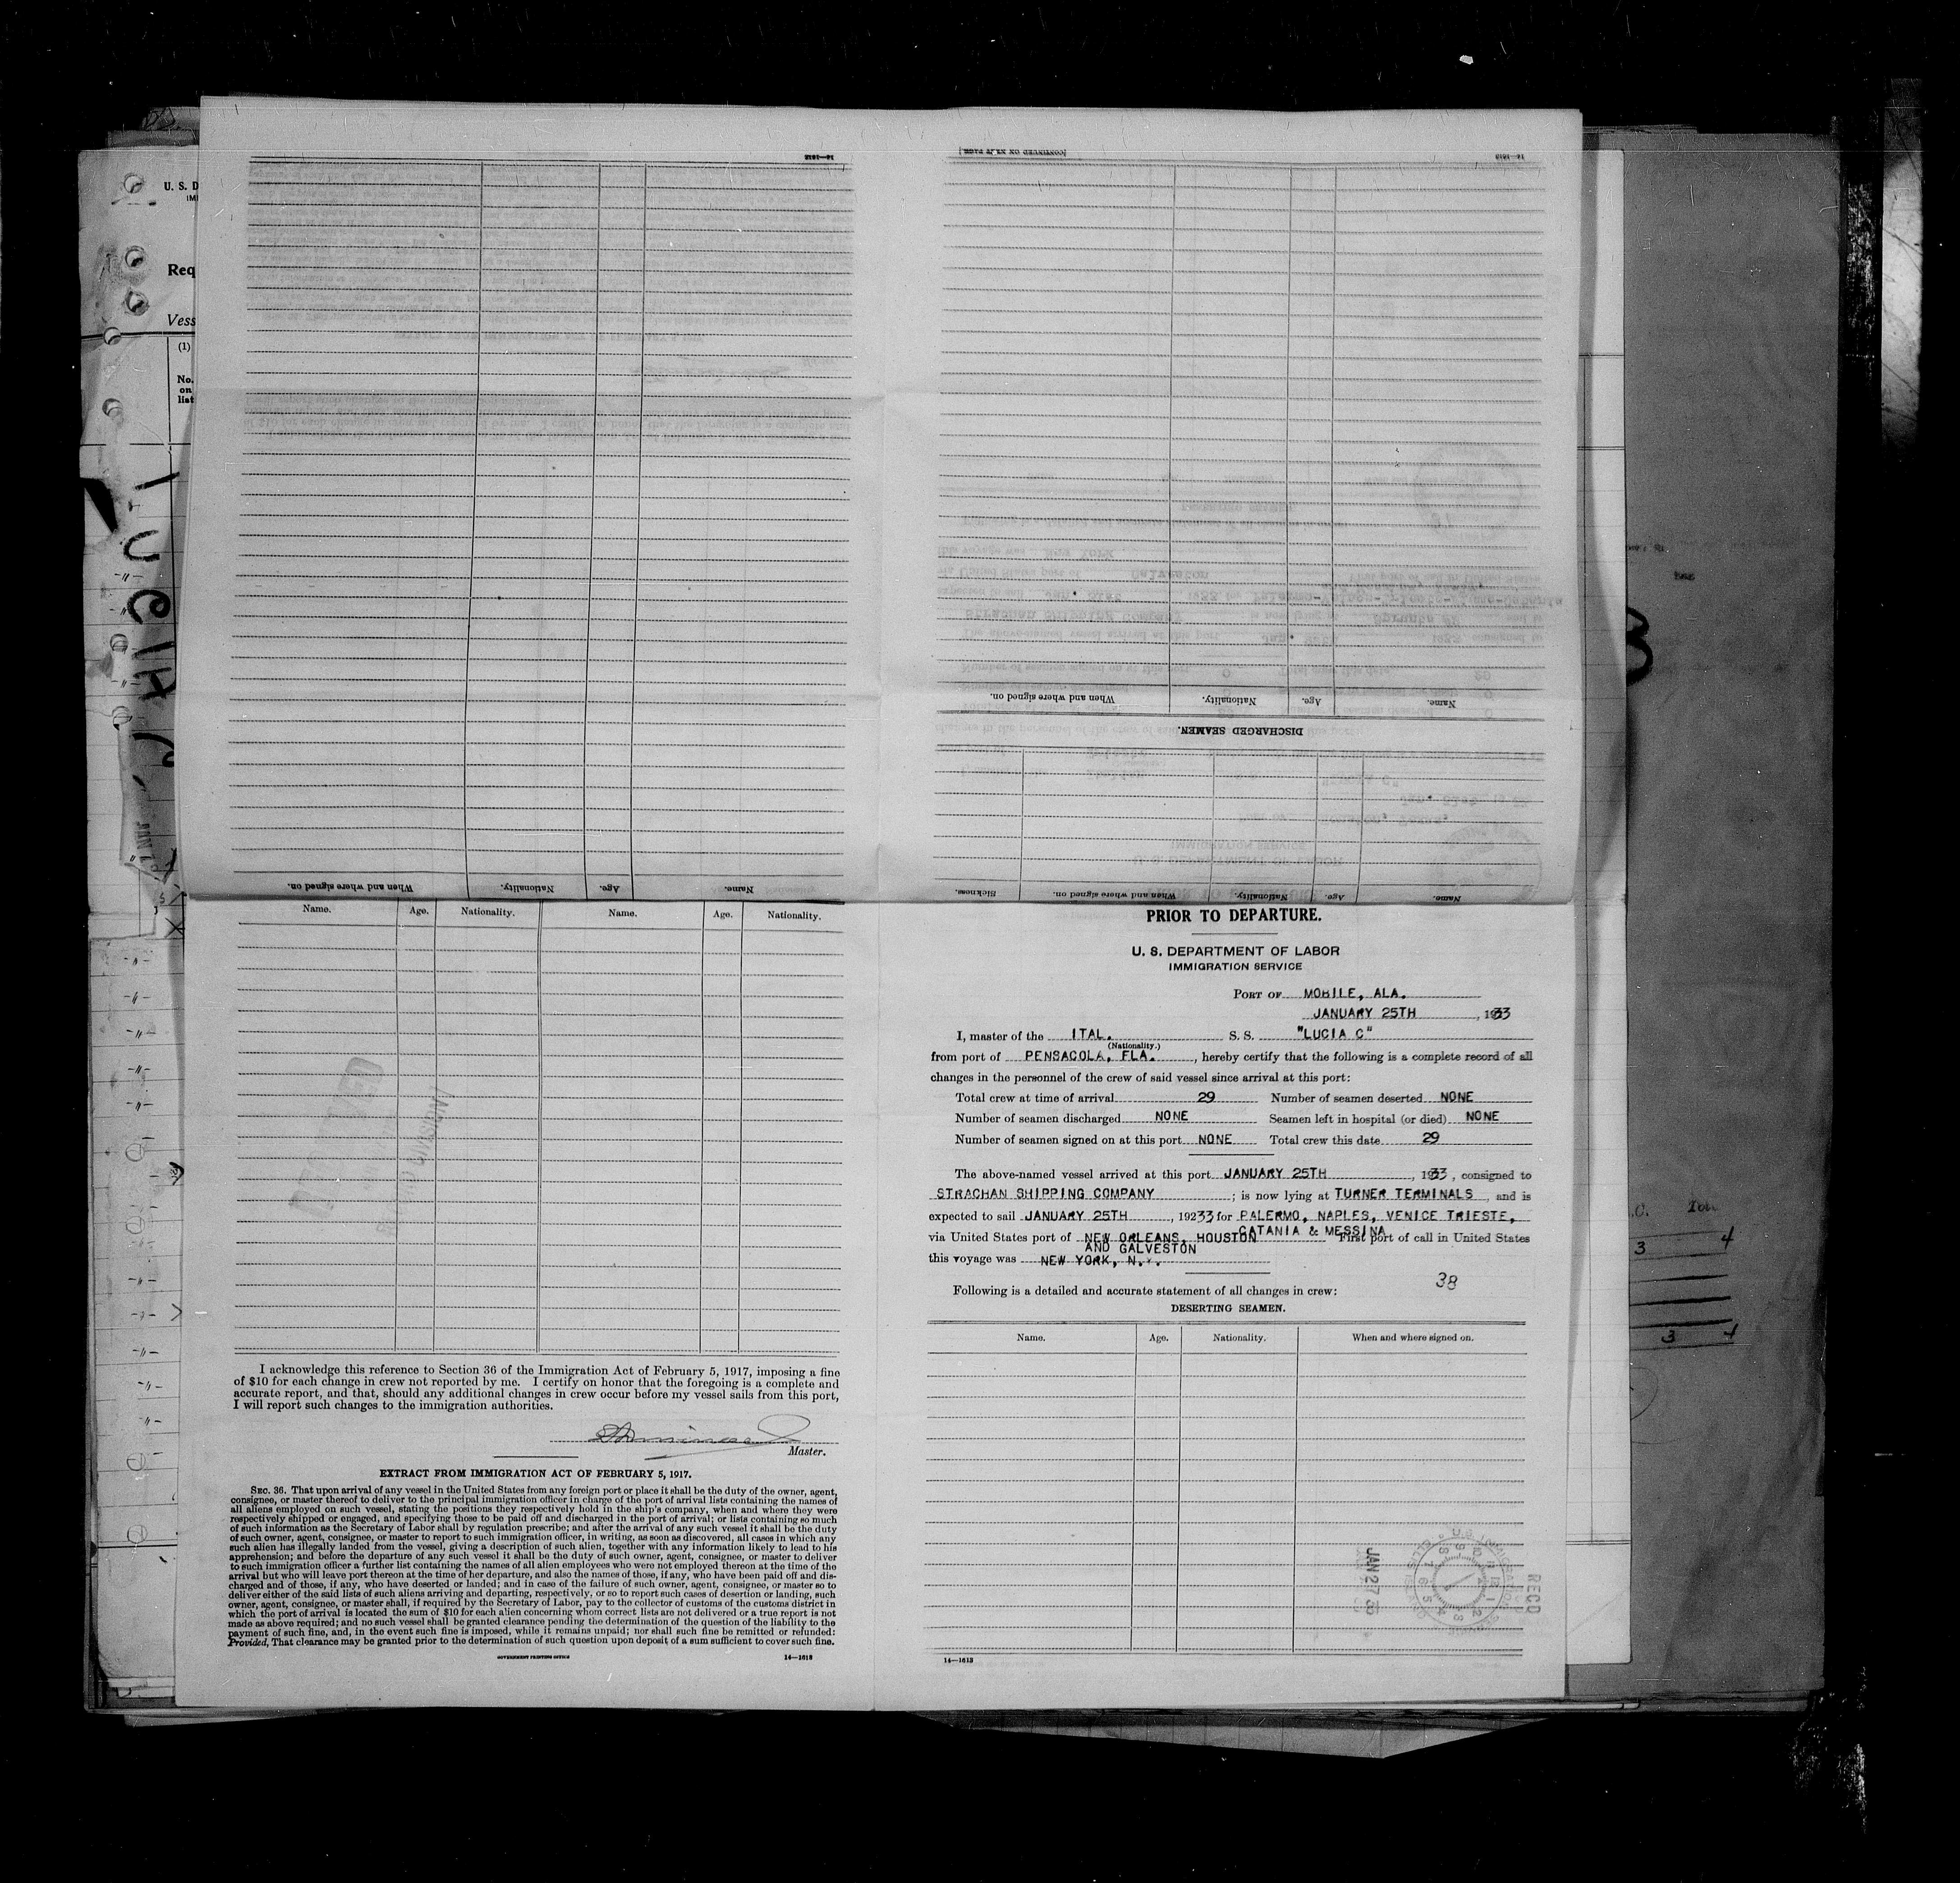 U. S. D
IM
Req
Vess
(1)
No.
on
list
When and where signed on.
Nationality.
Age.
Name.
DISCHARGED SEAMEN.
When and where signed on.
Nationality.
Age.
Name.
Sickness.
When and where signed on.
Nationality.
Age.
Name.
Name. Age. Nationality. Name. Age. Nationality.
I acknowledge this reference to Section 36 of the Immigration Act of February 5, 1917, imposing a fine
of $10 for each change in crew not reported by me. I certify on honor that the foregoing is a complete and
accurate report, and that, should any additional changes in crew occur before my vessel sails from this port,
I will report such changes to the immigration authorities.
Master.
EXTRACT FROM IMMIGRATION ACT OF FEBRUARY 5, 1917.
SEC. 36. That upon arrival of any vessel in the United States from any foreign port or place it shall be the duty of the owner, agent,
consignee, or master thereof to deliver to the principal immigration officer in charge of the port of arrival lists containing the names of
all aliens employed on such vessel, stating the positions they respectively hold in the ship's company, when and where they were
respectively shipped or engaged, and specifying those to be paid off and discharged in the port of arrival; or lists containing so much
of such information as the Secretary of Labor shall by regulation prescribe; and after the arrival of any such vessel it shall be the duty
of such owner, agent, consignee, or master to report to such immigration officer, in writing, as soon as discovered, all cases in which any
such alien has illegally landed from the vessel, giving a description of such alien, together with any information likely to lead to his
apprehension; and before the departure of any such vessel it shall be the duty of such owner, agent, consignee, or master to deliver
to such immigration officer a further list containing the names of all alien employees who were not employed thereon at the time of the
arrival but who will leave port thereon at the time of her departure, and also the names of those, if any, who have been paid off and dis-
charged and of those, if any, who have deserted or landed; and in case of the failure of such owner, agent, consignee, or master so to
deliver either of the said lists of such aliens arriving and departing, respectively, or so to report such cases of desertion or landing, such
owner, agent, consignee, or master shall, if required by the Secretary of Labor, pay to the collector of customs of the customs district in
which the port of arrival is located the sum of $10 for each alien concerning whom correct lists are not delivered or a true report is not
made as above required; and no such vessel shall be granted clearance pending the determination of the question of the liability to the
payment of such fine, and, in the event such fine is imposed, while it remains unpaid; nor shall such fine be remitted or refunded:
Provided, That clearance may be granted prior to the determination of such question upon deposit of a sum sufficient to cover such fine.
GOVERNMENT PRINTING OFFICE 14—1613
PRIOR TO DEPARTURE.
U. S. DEPARTMENT OF LABOR
IMMIGRATION SERVICE
PORT OF MOBILE, ALA.
JANUARY 25TH, 1933
I, master of the ITAL. S. S. "LUCIA C"
(Nationality.)
from port of PENSACOLA, FLA., hereby certify that the following is a complete record of all
changes in the personnel of the crew of said vessel since arrival at this port:
Total crew at time of arrival 29 Number of seamen deserted NONE
Number of seamen discharged NONE Seamen left in hospital (or died) NONE
Number of seamen signed on at this port NONE Total crew this date 29
The above-named vessel arrived at this port JANUARY 25TH, 1933, consigned to
STRACHAN SHIPPING COMPANY; is now lying at TURNER TERMINALS, and is
expected to sail JANUARY 25TH, 19233 for PALERMO, NAPLES, VENICE TRIESTE,
CATANIA & MESSINA
via United States port of NEW ORLEANS, HOUSTON First port of call in United States
AND GALVESTON
this voyage was NEW YORK, N.Y.
38
Following is a detailed and accurate statement of all changes in crew:
DESERTING SEAMEN.
Name. Age. Nationality. When and where signed on.
REC'D
U.S. IMMIGRATION
JAN 27 33
14—1613